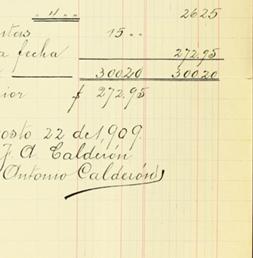 " 2625
tas 15 "
a fecha 272.95
30020 30020
ior $ 272.95
osto 22 de 1909.
F. A. Calderón
Antonio Calderón